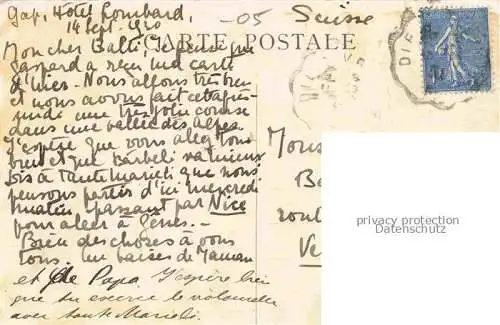 Gap, Hôtel Lombard, -05 Suisse
14 Sept. 920
CARTE POSTALE
Mon cher Balti, Je pense que
Gaspard a reçu ma carte
d'hier. Nous allons très bien
et nous avons fait cet après-
midi une très jolie course
dans une vallée des Alpes.
J'espère que vous allez tous
bien et que Bärbeli va mieux
Dis à tante Marieli que nous
pensons partir d'ici mercredi
matin passant par Nice
pour aller à Gênes.-
Bien des choses à vous
tous. Un baiser de Maman
et de Papa. J'espère
que tu exerce le violoncelle
avec tante Marieli.
Mons
Ba
rout
Ve
privacy protection
www.oldthing.de